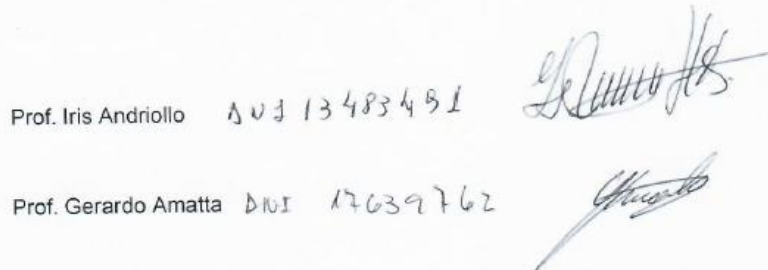 Prof. Iris Andriollo DNI 13483491
Prof. Gerardo Amatta DNI 17639762